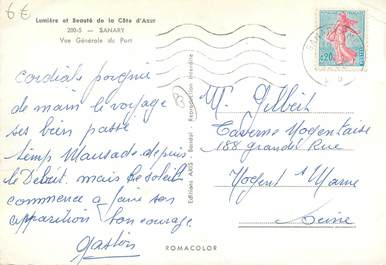 6€
Lumière et Beauté de la Côte d'Azur
200-5 — SANARY
Vue Générale du Port
cordiale poignée
de main le voyage
ses bien passé
temp Maussade depuis
le Debut. mais le soleil
commence a faire son
apparition bon courage
Gaston
Editions ARIS - Bandol - Reproduction interdite
0,20
M. Gilbert
Taverne Nogentaise
188 grande Rue
Nogent s/ Marne
Seine
ROMACOLOR